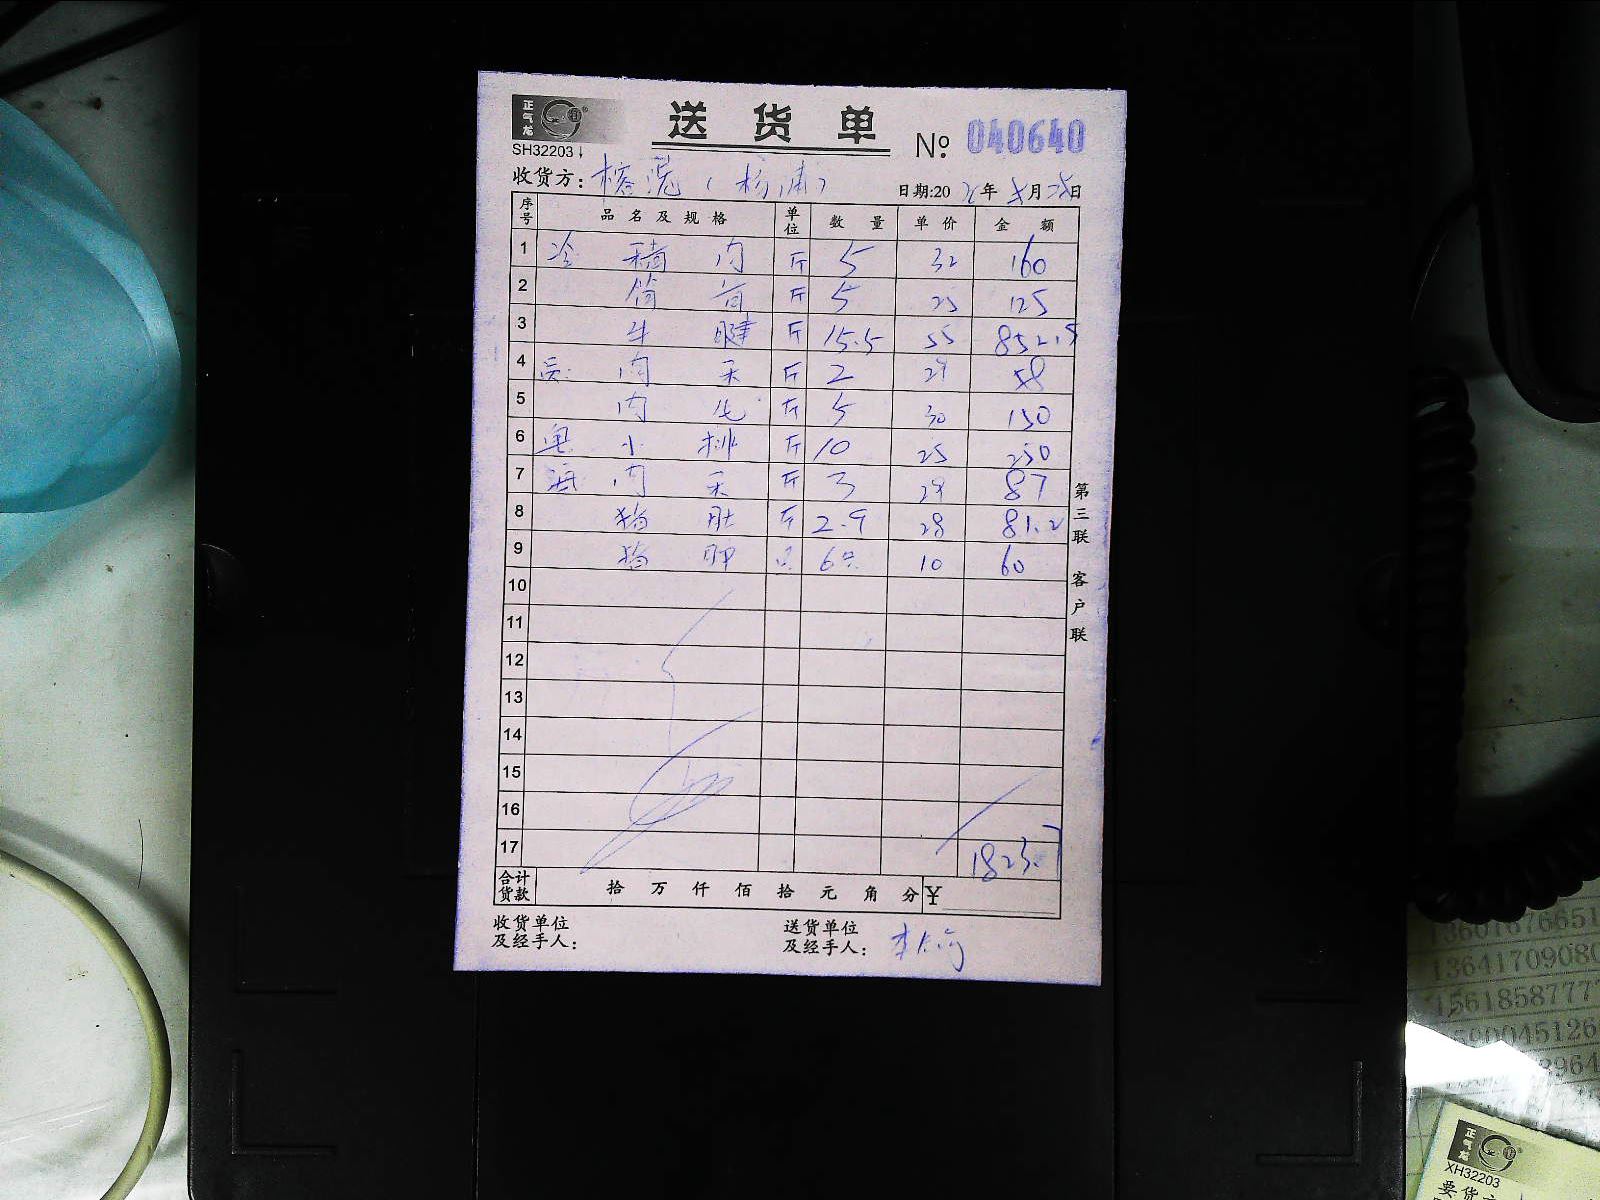 正气龙
送货单
SH32203
№ 040640
收货方:
日期:20 年 月 日
序号 品名及规格 单位 数量 单价 金额
1 冷 精 肉 斤 5 32 160
2 筒 骨 斤 5 25 125
3 牛 腱 斤 15.5 55 852.5
4 肉 天 斤 2 29 58
5 肉 斤 5 30 150
6 小 排 斤 10 25 250
7 海 肉 天 斤 3 29 87
8 猪 肚 斤 2.9 28 81.2
9 猪 只 6只 10 60
10
11
12
13
14
15
16
17 1823.7
合计货款 拾 万 仟 佰 拾 元 角 分 ¥
收货单位及经手人:
送货单位及经手人:
第三联 客户联
13641709080
正气龙
XH32203